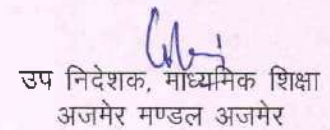 उप निदेशक, माध्यमिक शिक्षा
अजमेर मण्डल अजमेर